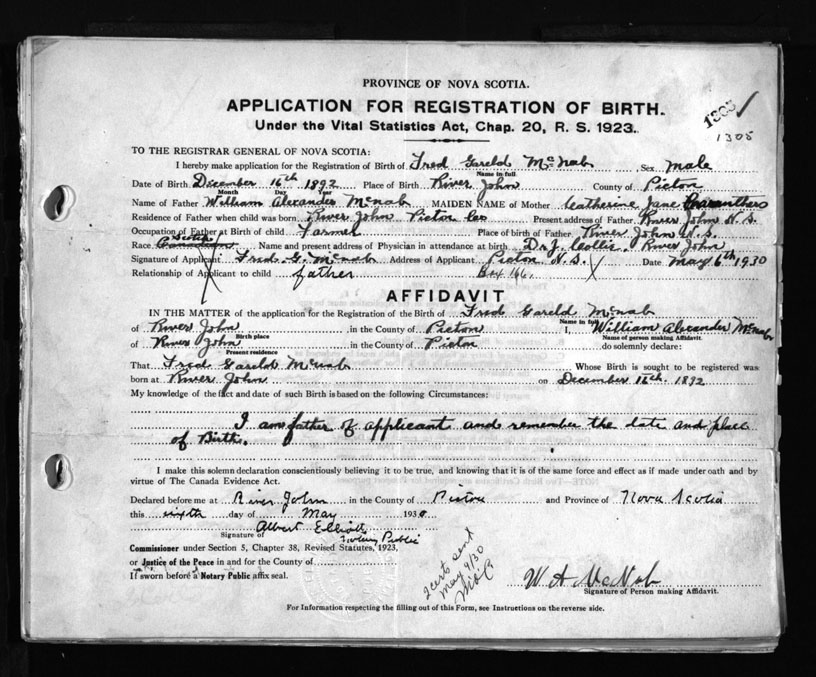 PROVINCE OF NOVA SCOTIA.
APPLICATION FOR REGISTRATION OF BIRTH.
1305
Under the Vital Statistics Act, Chap. 20, R. S. 1923.
1305
TO THE REGISTRAR GENERAL OF NOVA SCOTIA:
I hereby make application for the Registration of Birth of Fred Gareld McNab Sex male
Name in full
Date of Birth December 16th 1892 Place of Birth River John County of Pictou
Month Day Year
Name of Father William Alexander McNab MAIDEN NAME of Mother Catherine Jane
Residence of Father when child was born River John Pictou Co Present address of Father River John N.S.
Occupation of Father at Birth of child Farmer Place of birth of Father River John N.S.
Scotch
Race Canadian Name and present address of Physician in attendance at birth Dr J. Collie River John
Signature of Applicant Fred G. McNab Address of Applicant Pictou N.S. Date May 6th 1930
Relationship of Applicant to child father Box 166.
AFFIDAVIT
IN THE MATTER of the application for the Registration of the Birth of Fred Gareld McNab
Name in full
of River John in the County of Pictou I, William Alexander McNab
Birth place Name of person making Affidavit.
of River John in the County of Pictou do solemnly declare:
Present residence
That Fred Gareld McNab Whose Birth is sought to be registered was
born at River John on December 16th. 1892
My knowledge of the fact and date of such Birth is based on the following Circumstances:
I am father of applicant and remember the date and place
of Birth.
I make this solemn declaration conscientiously believing it to be true, and knowing that it is of the same force and effect as if made under oath and by
virtue of The Canada Evidence Act.
Declared before me at River John in the County of Pictou and Province of Nova Scotia
this sixth day of May 1930
Albert Elliott
Signature of Notary Public
Commissioner under Section 5, Chapter 38, Revised Statutes, 1923,
or Justice of the Peace in and for the County of
If sworn before a Notary Public affix seal.
2 certs sent
May 9/30
W A McNab
Signature of Person making Affidavit.
For Information respecting the filling out of this Form, see Instructions on the reverse side.